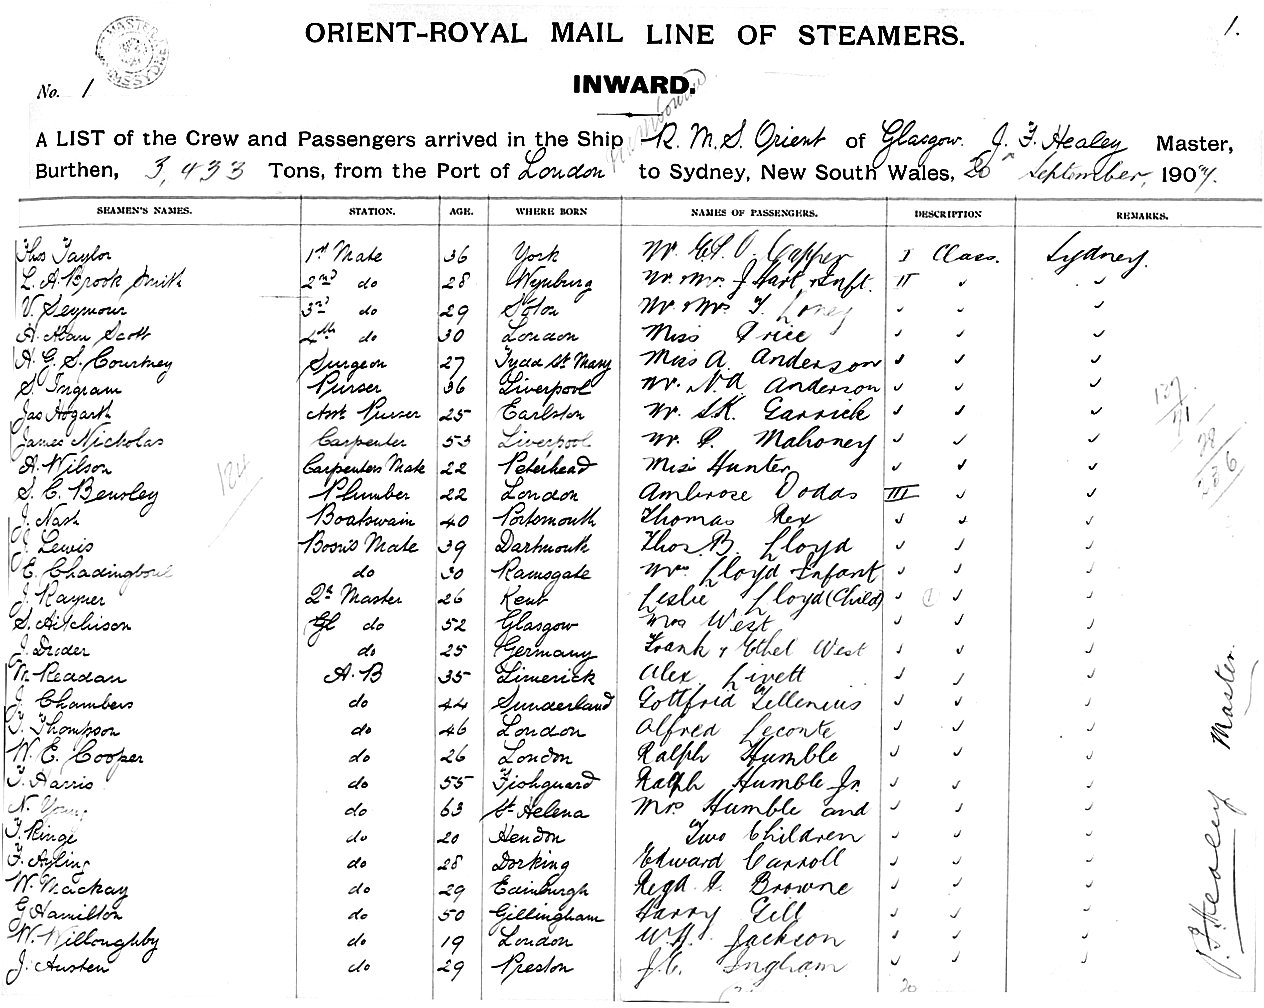 ORIENT-ROYAL MAIL LINE OF STEAMERS.
1.
No. 1
INWARD.
A LIST of the Crew and Passengers arrived in the Ship R. M. S. Orient of Glasgow. J. F. Healey Master,
Burthen, 3,433 Tons, from the Port of London to Sydney, New South Wales, 20 September, 1907.
SEAMEN'S NAMES. STATION. AGE. WHERE BORN NAMES OF PASSENGERS. DESCRIPTION REMARKS.
Thos Taylor 1st Mate 36 York Mr. Capper I Class. Sydney.
L. A. Brook Smith 2nd do 28 Wynburg Mr. Mrs. J Hart & Inft. II ✓ ✓
V. Seymour 3rd do 29 Mr & Mrs T. ✓ ✓ ✓
A. Alan Scott 4th do 30 London Miss Price ✓ ✓ ✓
A. G. S. Courtney Surgeon 27 Tydd St Mary Miss A. Anderson ✓ ✓ ✓
S. Ingram Purser 36 Liverpool Mr. N. A Anderson ✓ ✓ ✓
Jas Hogarth Asst Purser 25 Earlston Mr. S.K. Garrick ✓ ✓ ✓
James Nicholas Carpenter 53 Liverpool Mr. P. Mahoney ✓ ✓ ✓
A. Wilson Carpenters Mate 22 Peterhead Miss Hunter ✓ ✓ ✓
S. C. Bensley Plumber 22 London Ambrose Dodds III ✓ ✓
J. Nash Boatswain 40 Portsmouth Thomas Rex ✓ ✓ ✓
J. Lewis Bosn's Mate 39 Dartmouth Thos. B. Lloyd ✓ ✓ ✓
E. do 30 Ramsgate Mrs Lloyd & Infant ✓ ✓ ✓
J. Rayner Qr Master 26 Kent Leslie Lloyd (Child) ✓ ✓ ✓
S. Aitchison do 52 Glasgow Mrs West ✓ ✓ ✓
J. do 25 Germany Frank & Ethel West ✓ ✓ ✓
W. Readdan A. B 35 Limerick Alex Livett ✓ ✓ ✓
J. Chambers do 44 Sunderland Gottfrid Tellenius ✓ ✓ ✓
T. Thompson do 46 London Alfred Leconte ✓ ✓ ✓
W. E. Cooper do 26 London Ralph Humble ✓ ✓ ✓
T. Harris do 55 Fishguard Ralph Humble Jr. ✓ ✓ ✓
N. Young do 63 St Helena Mrs Humble and ✓ ✓ ✓
F. Ringe do 20 Hendon Two Children ✓ ✓ ✓
F. Ayling do 28 Dorking Edward Carroll ✓ ✓ ✓
W. Mackay do 29 Edinburgh Regd P. Browne ✓ ✓ ✓
G Hamilton do 50 Gillingham Harry Gill ✓ ✓ ✓
W. Willoughby do 19 London W H. Jackson ✓ ✓ ✓
J. Austen do 29 Preston J. C. Ingham ✓ ✓ ✓
124
J. F. Healey Master.
20